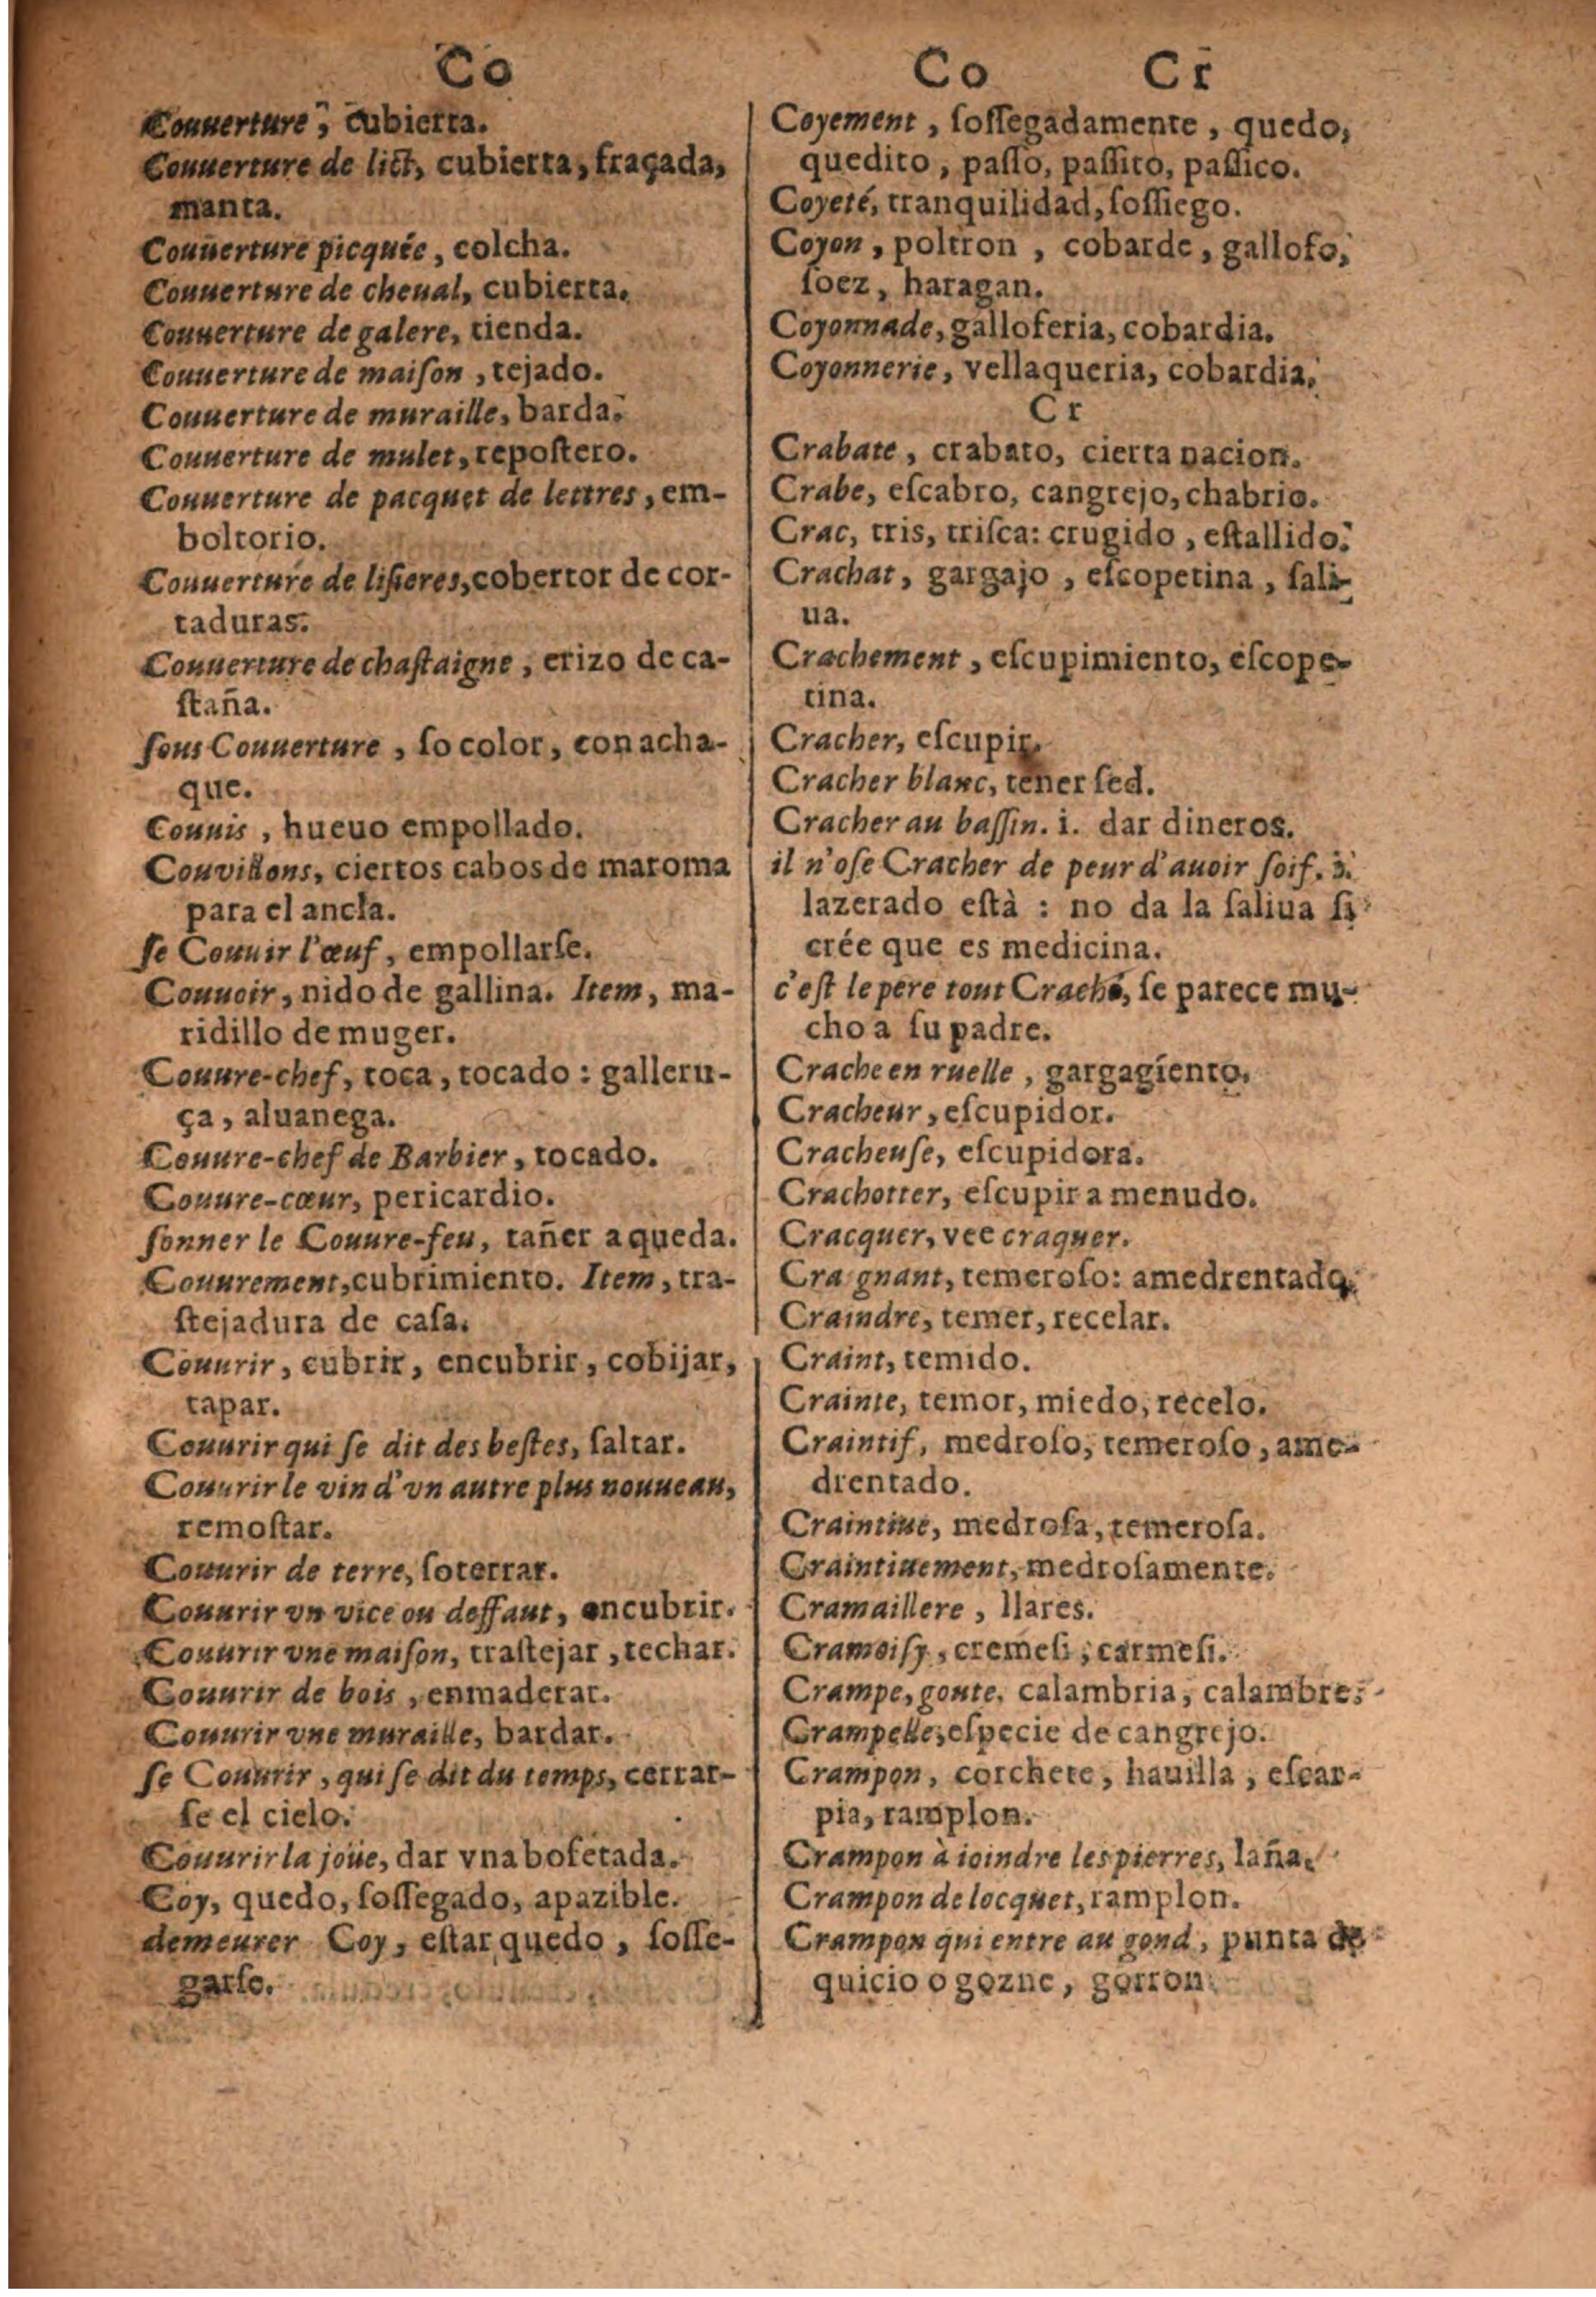 Co
Couuerture, cubierta.
Couuerture de lict, cubierta, fraçada,
manta.
Couuerture picquée, colcha.
Couuerture de cheual, cubierta.
Couuerture de galere, tienda.
Couuerture de maiſon, tejado.
Couuerture de muraille, barda.
Couuerture de mulet, repoſtero.
Couuerture de pacquet de lettres, em-
boltorio.
Couuerture de liſieres, cobertor de cor-
taduras.
Couuerture de chaſtaigne, erizo de ca-
ſtaña.
ſous Couuerture, ſo color, con acha-
que.
Couuis, hueuo empollado.
Couvillons, ciertos cabos de maroma
para el ancla.
ſe Couuir l'œuf, empollarſe.
Couuoir, nido de gallina. Item, ma-
ridillo de muger.
Couure-chef, toca, tocado: galleru-
ça, aluanega.
Couure-chef de Barbier, tocado.
Couure-cœur, pericardio.
ſonner le Couure-feu, tañer a queda.
Couurement, cubrimiento. Item, tra-
ſtejadura de caſa.
Couurir, cubrir, encubrir, cobijar,
tapar.
Couurir qui ſe dit des beſtes, ſaltar.
Couurir le vin d'vn autre plus nouueau,
remoſtar.
Couurir de terre, ſoterrar.
Couurir vn vice ou deffaut, encubrir.
Couurir vne maiſon, traſtejar, techar.
Couurir de bois, enmaderar.
Couurir vne muraille, bardar.
ſe Couurir, qui ſe dit du temps, cerrar-
ſe el cielo.
Couurir la joüe, dar vna bofetada.
Coy, quedo, ſoſſegado, apazible.
demeurer Coy, eſtar quedo, ſoſſe-
garſe.
Co Cr
Coyement, ſoſſegadamente, quedo,
quedito, paſſo, paſſito, paſſico.
Coyeté, tranquilidad, ſoſſiego.
Coyon, poltron, cobarde, gallofo,
ſoez, haragan.
Coyonnade, galloferia, cobardia.
Coyonnerie, vellaqueria, cobardia.
Cr
Crabate, crabato, cierta nacion.
Crabe, eſcabro, cangrejo, chabrio.
Crac, tris, triſca: crugido, eſtallido.
Crachat, gargajo, eſcopetina, ſali-
ua.
Crachement, eſcupimiento, eſcope-
tina.
Cracher, eſcupir.
Cracher blanc, tener ſed.
Cracher au baſſin. i. dar dineros.
il n'oſe Cracher de peur d'auoir ſoif. i.
lazerado eſtà: no da la ſaliua ſi
crée que es medicina.
c'eſt le pere tout Craché, ſe parece mu-
cho a ſu padre.
Crache en ruelle, gargagiento.
Cracheur, eſcupidor.
Cracheuſe, eſcupidora.
Crachotter, eſcupir a menudo.
Cracquer, vee craquer.
Cra gnant, temeroſo: amedrentado.
Craindre, temer, recelar.
Craint, temido.
Crainte, temor, miedo, recelo.
Craintif, medroſo, temeroſo, ame-
drentado.
Craintiue, medroſa, temeroſa.
Craintiuement, medroſamente.
Cramaillere, llares.
Cramoiſy, cremeſi, carmeſi.
Crampe, goute, calambria, calambre.
Crampelle, eſpecie de cangrejo.
Crampon, corchete, hauilla, eſcar-
pia, ramplon.
Crampon à ioindre les pierres, laña.
Crampon de locquet, ramplon.
Crampon qui entre au gond, punta de
quicio o gozne, gorron.